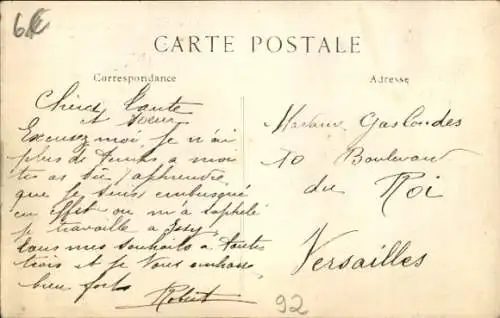 6
CARTE POSTALE
Correspondance
Adresse
Chère Tante
et soeur
Excusez moi je n'ai
plus de temps a moi
tu as dû apprendre
que je suis embusqué
en effet on m'a
je travaille a Issy
tous mes souhaits a toutes
trois et je vous embrasse
bien fort
Robert
Madame Gaslondes
10 Boulevard
du Roi
Versailles
92